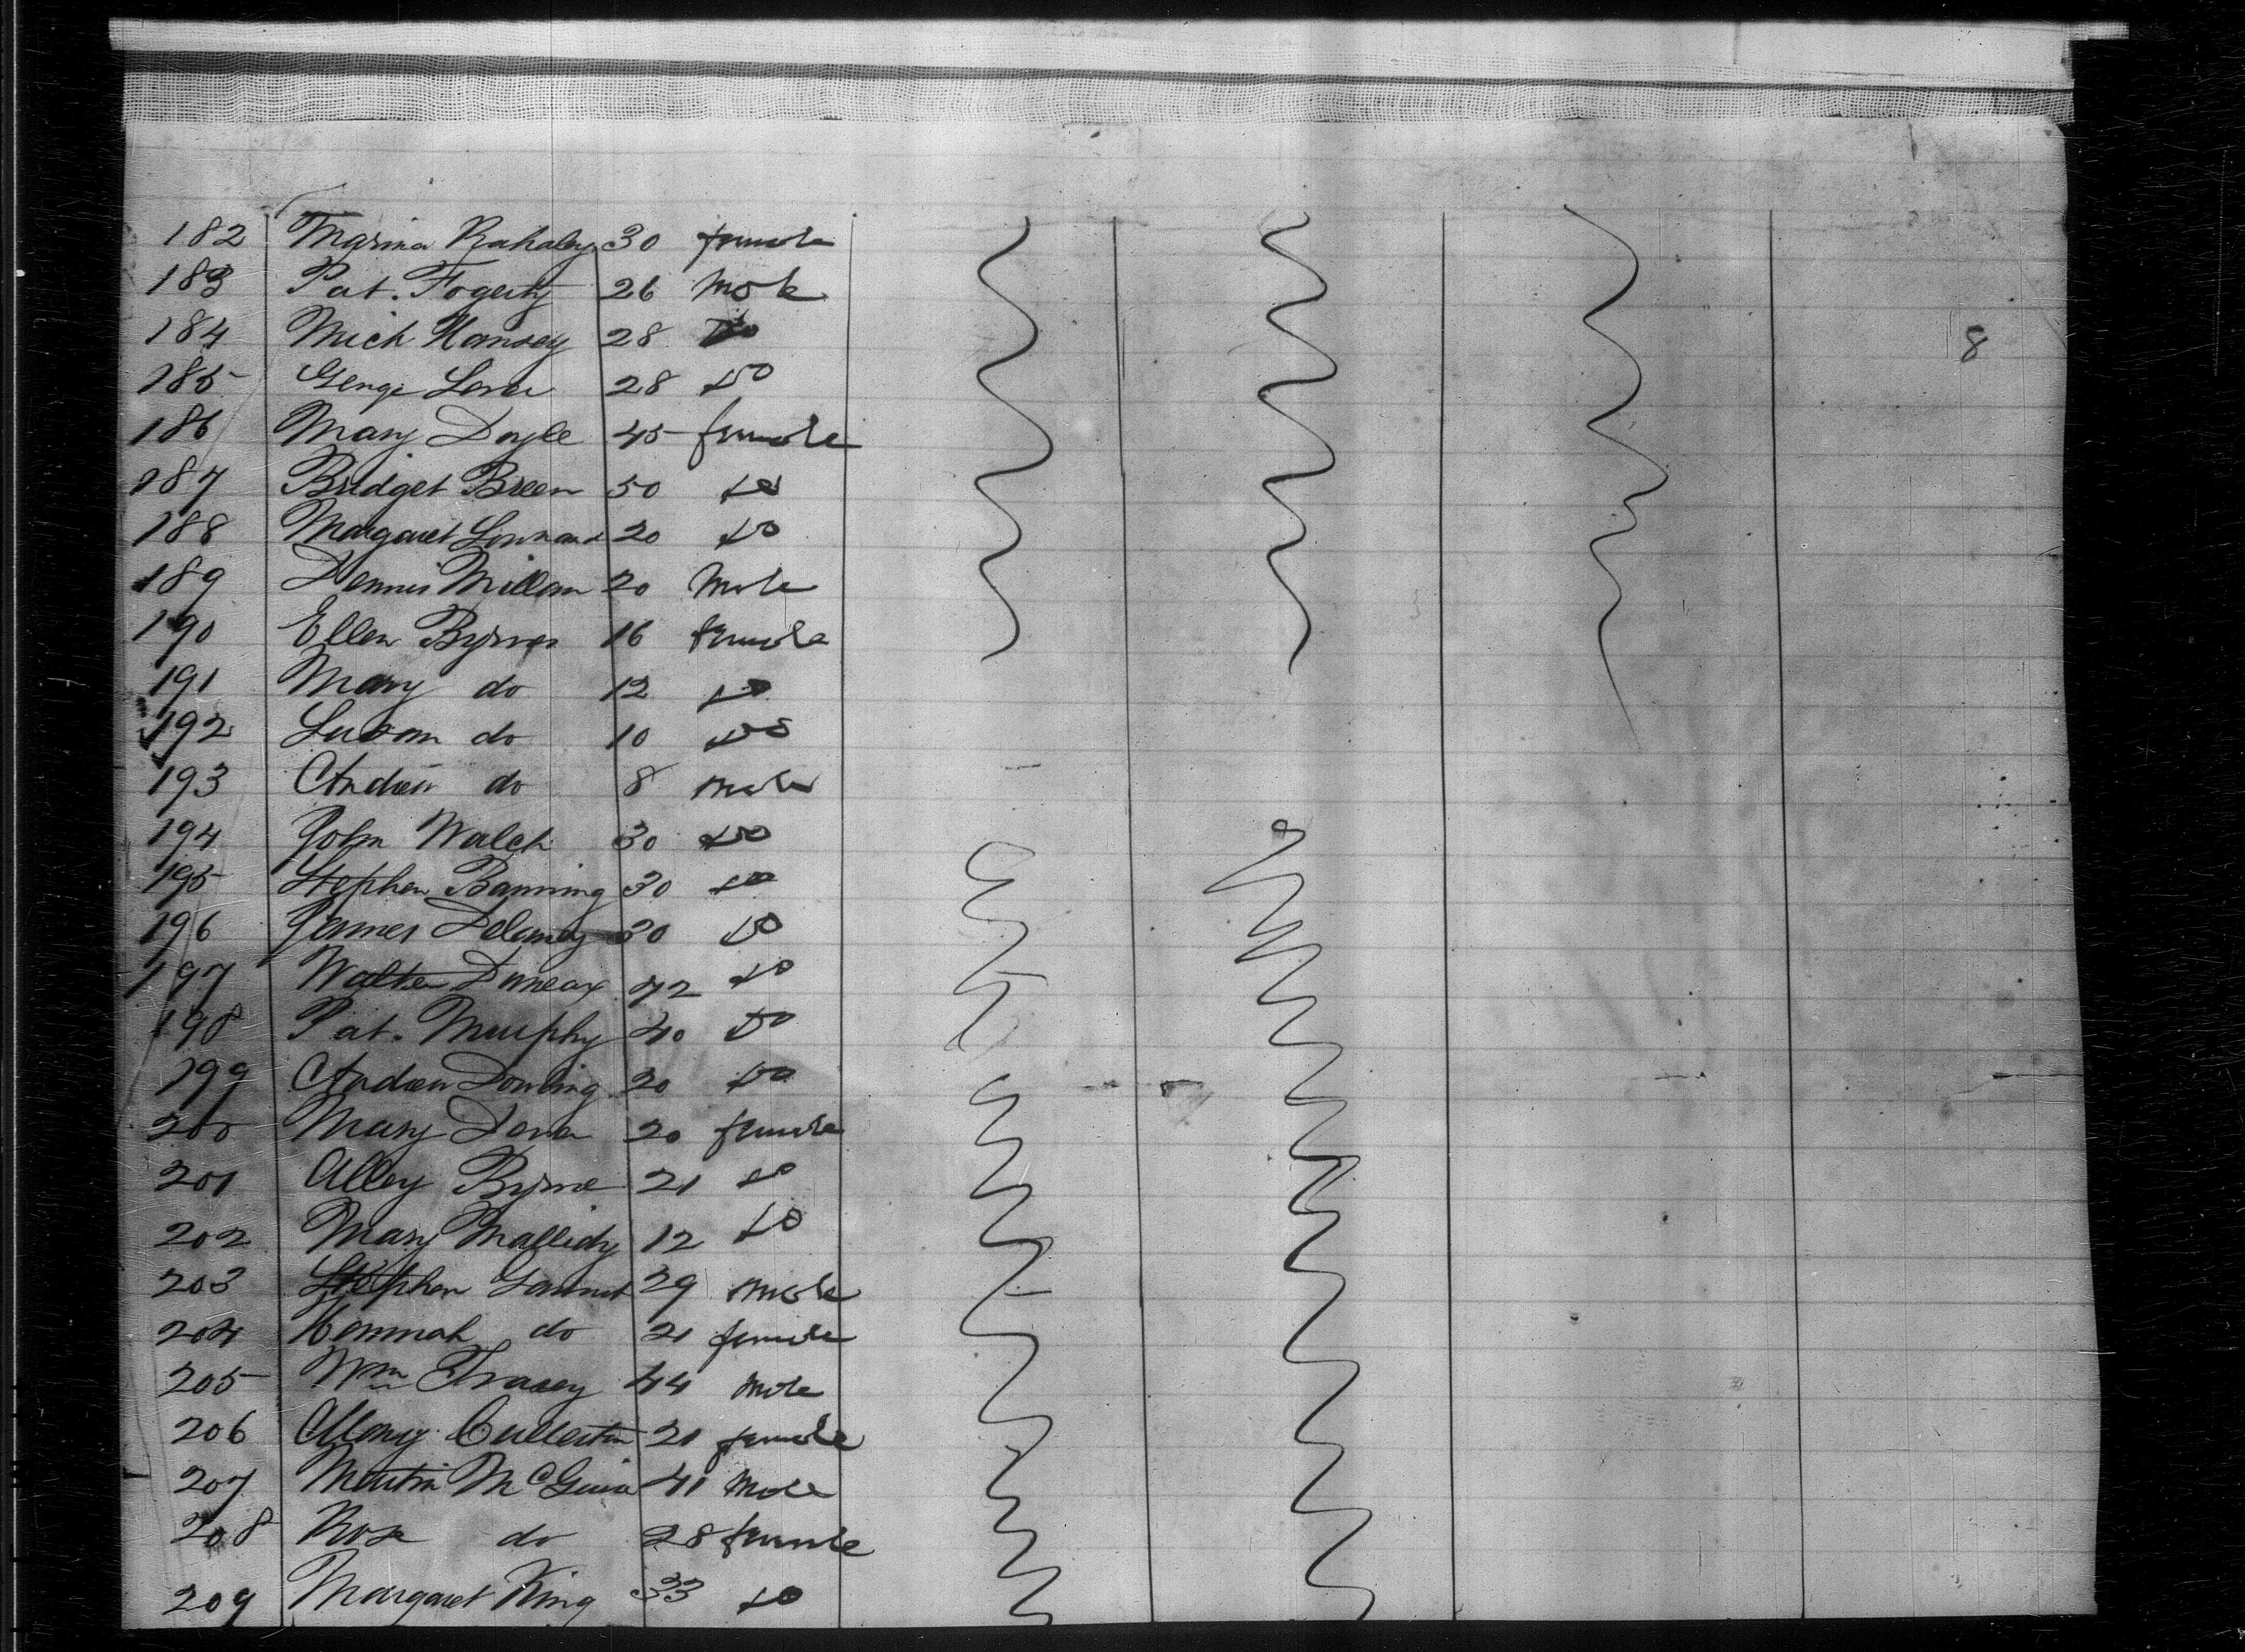 182 30 female
183 Pat. Fogerty 26 male
184 Mich 28 Do
8
185 George 28 do
186 Mary Doyle 45 female
187 Bridget Breen 50 do
188 Margaret 20 do
189 Dennis 20 Male
190 Ellen Byrnes 16 female
191 Mary do 12 do
192 Susan do 10 do
193 Andrew do 8 male
194 John Walch 30 do
195 Stephen Banning 30 do
196 James Delaney 30 do
197 Walter do
198 Pat. Murphy 40 do
199 Andrew Dowling 20 do
200 Mary 20 female
201 Alley Byrne 21 do
202 Mary Mallidy 12 do
203 Stephen 29 male
204 Hannah do 21 female
205 Wm Trasey 44 male
206 Cullerton 21 female
207 Martin McGuire 41 Male
208 Rose do 28 female
209 Margaret King 33 do